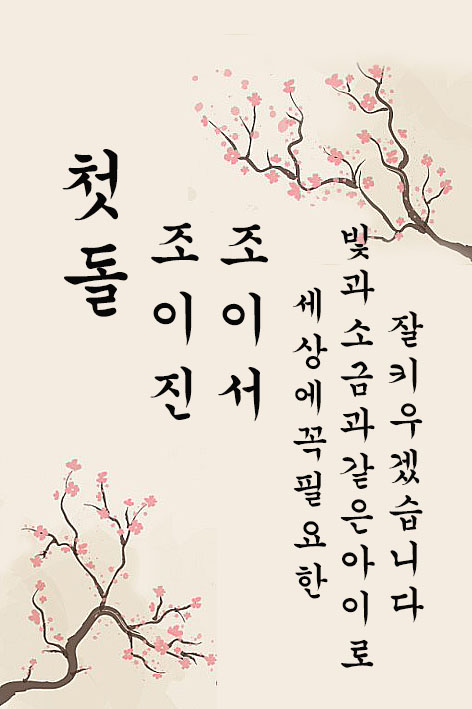 첫돌
조이진
조이서
세상에꼭필요한
빛과소금과같은아이로
잘키우겠습니다